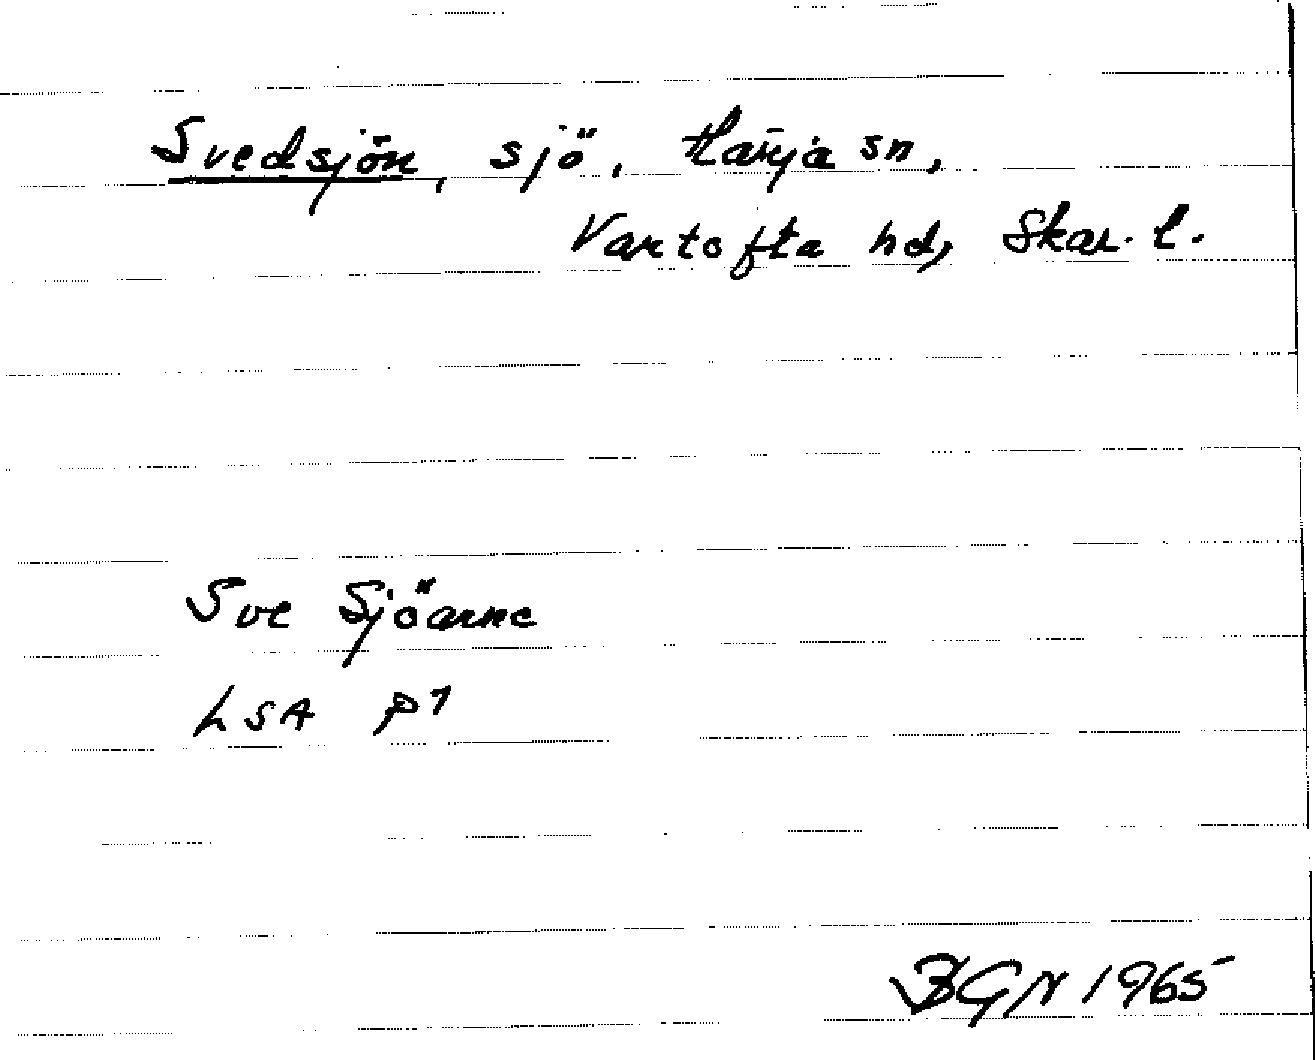 Svedsjön, sjö, Härja sn,
Vartofta hd, Skar. l.
Sve Sjöarne
LSA P1
BGN 1965